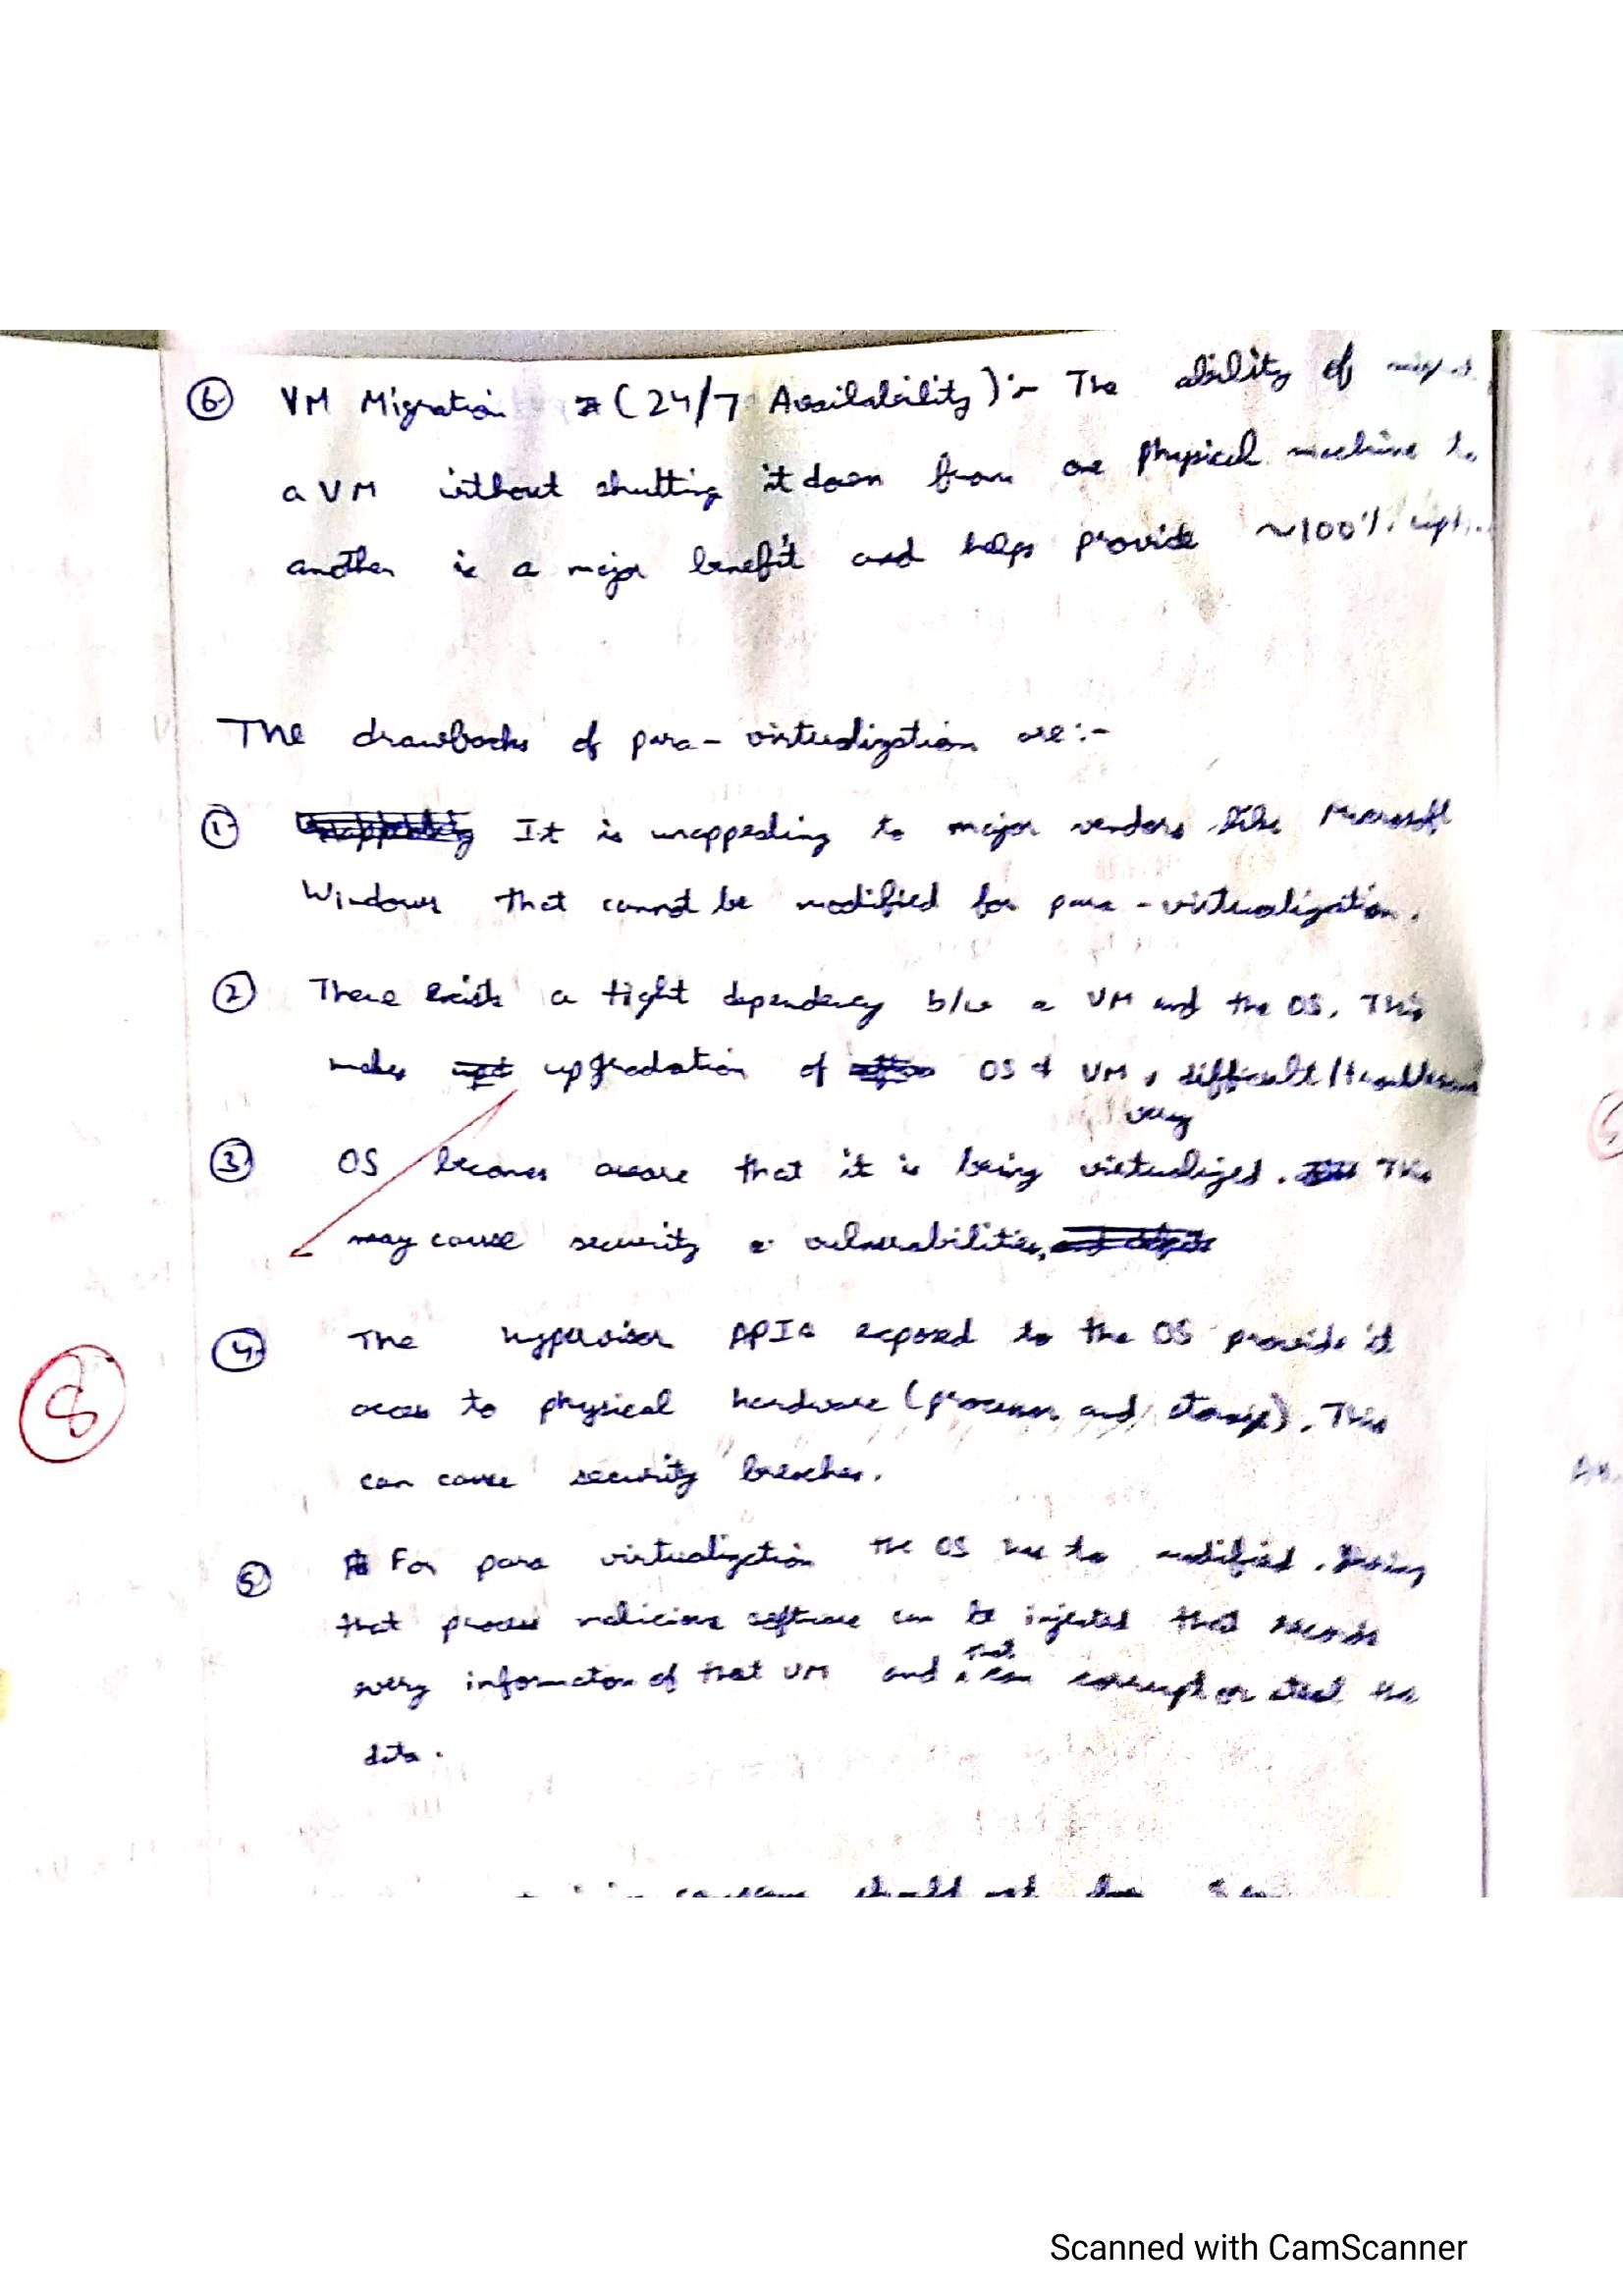 ⑥ VM Migration (24/7 Availability):- The ability of
a VM without shutting it down from one physical machine to
another is a major benefit and helps provide ~100%
The drawbacks of para-virtualization are:-
① It is unappealing to major vendors like Microsoft
Windows that cannot be modified for para-virtualization.
② There exists a tight dependency b/w a VM and the OS. This
makes upgradation of OS & VM difficult/troublesome
very
③ OS becomes aware that it is being virtualized. This
may cause security vulnerabilities.
④ The hypervisor APIs exposed to the OS provide it
8
access to physical hardware (processor and storage). This
can cause security breaches.
⑤ For para virtualization the OS has to modified. During
that process malicious software can be injected that records
every information of that VM and can corrupt or steal the
that
data.
should not
Scanned with CamScanner